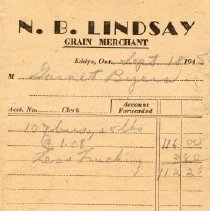 N. B. LINDSAY
GRAIN MERCHANT
Eddys, Ont., Sept 18 194
M Garnet
Acct. No. Clerk Account Forwarded
107 bus
@ 1.08 116 00
Less Trucking
112